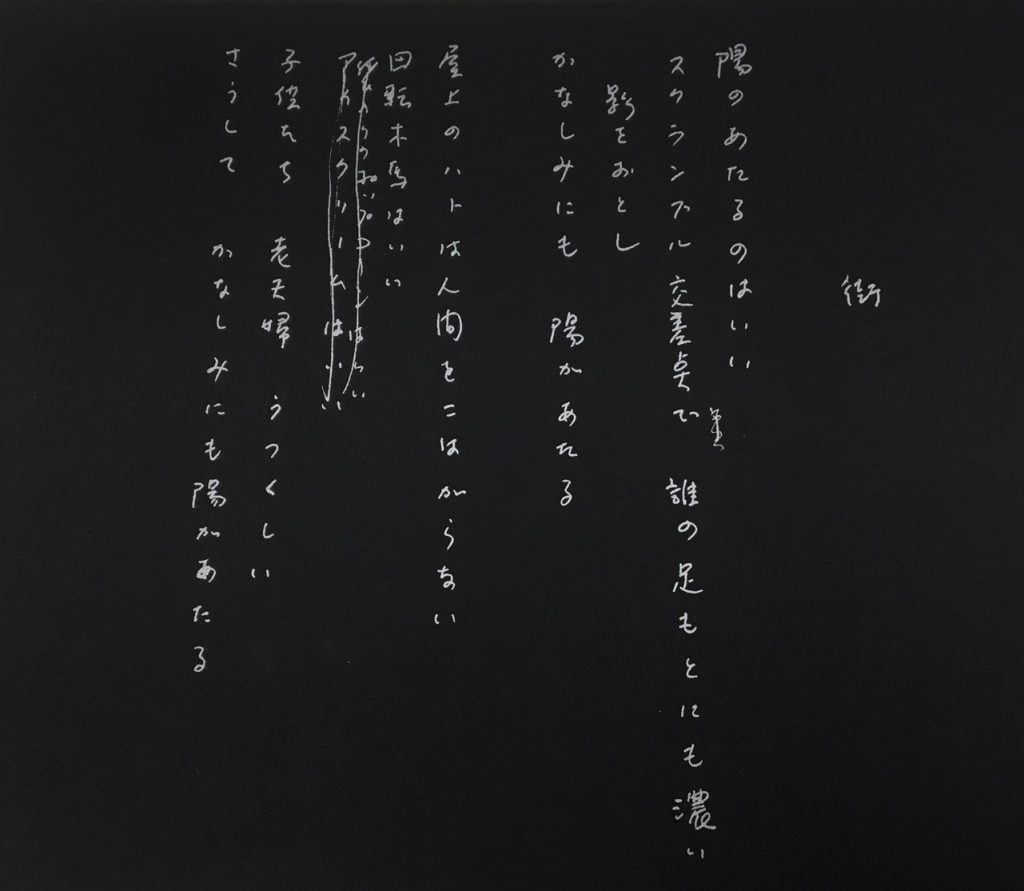 街
陽のあたるのはいい
スクランブル交差点で 誰の足もとにも濃い
影をおとし
かなしみにも 陽があたる
屋上のハトは人間をこはがらない
回転木馬はいい
アイスクリームはいい
子供たち 老夫婦 うつくしい
さうして かなしみにも陽があたる